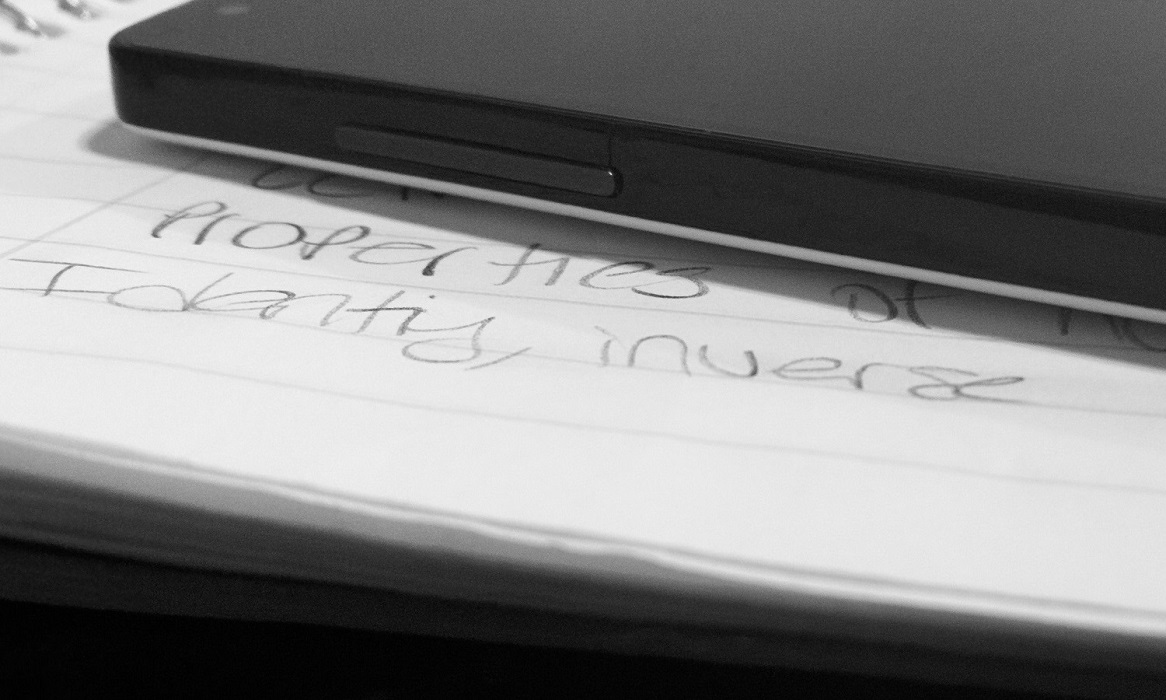 Properties of
Identity, inverse